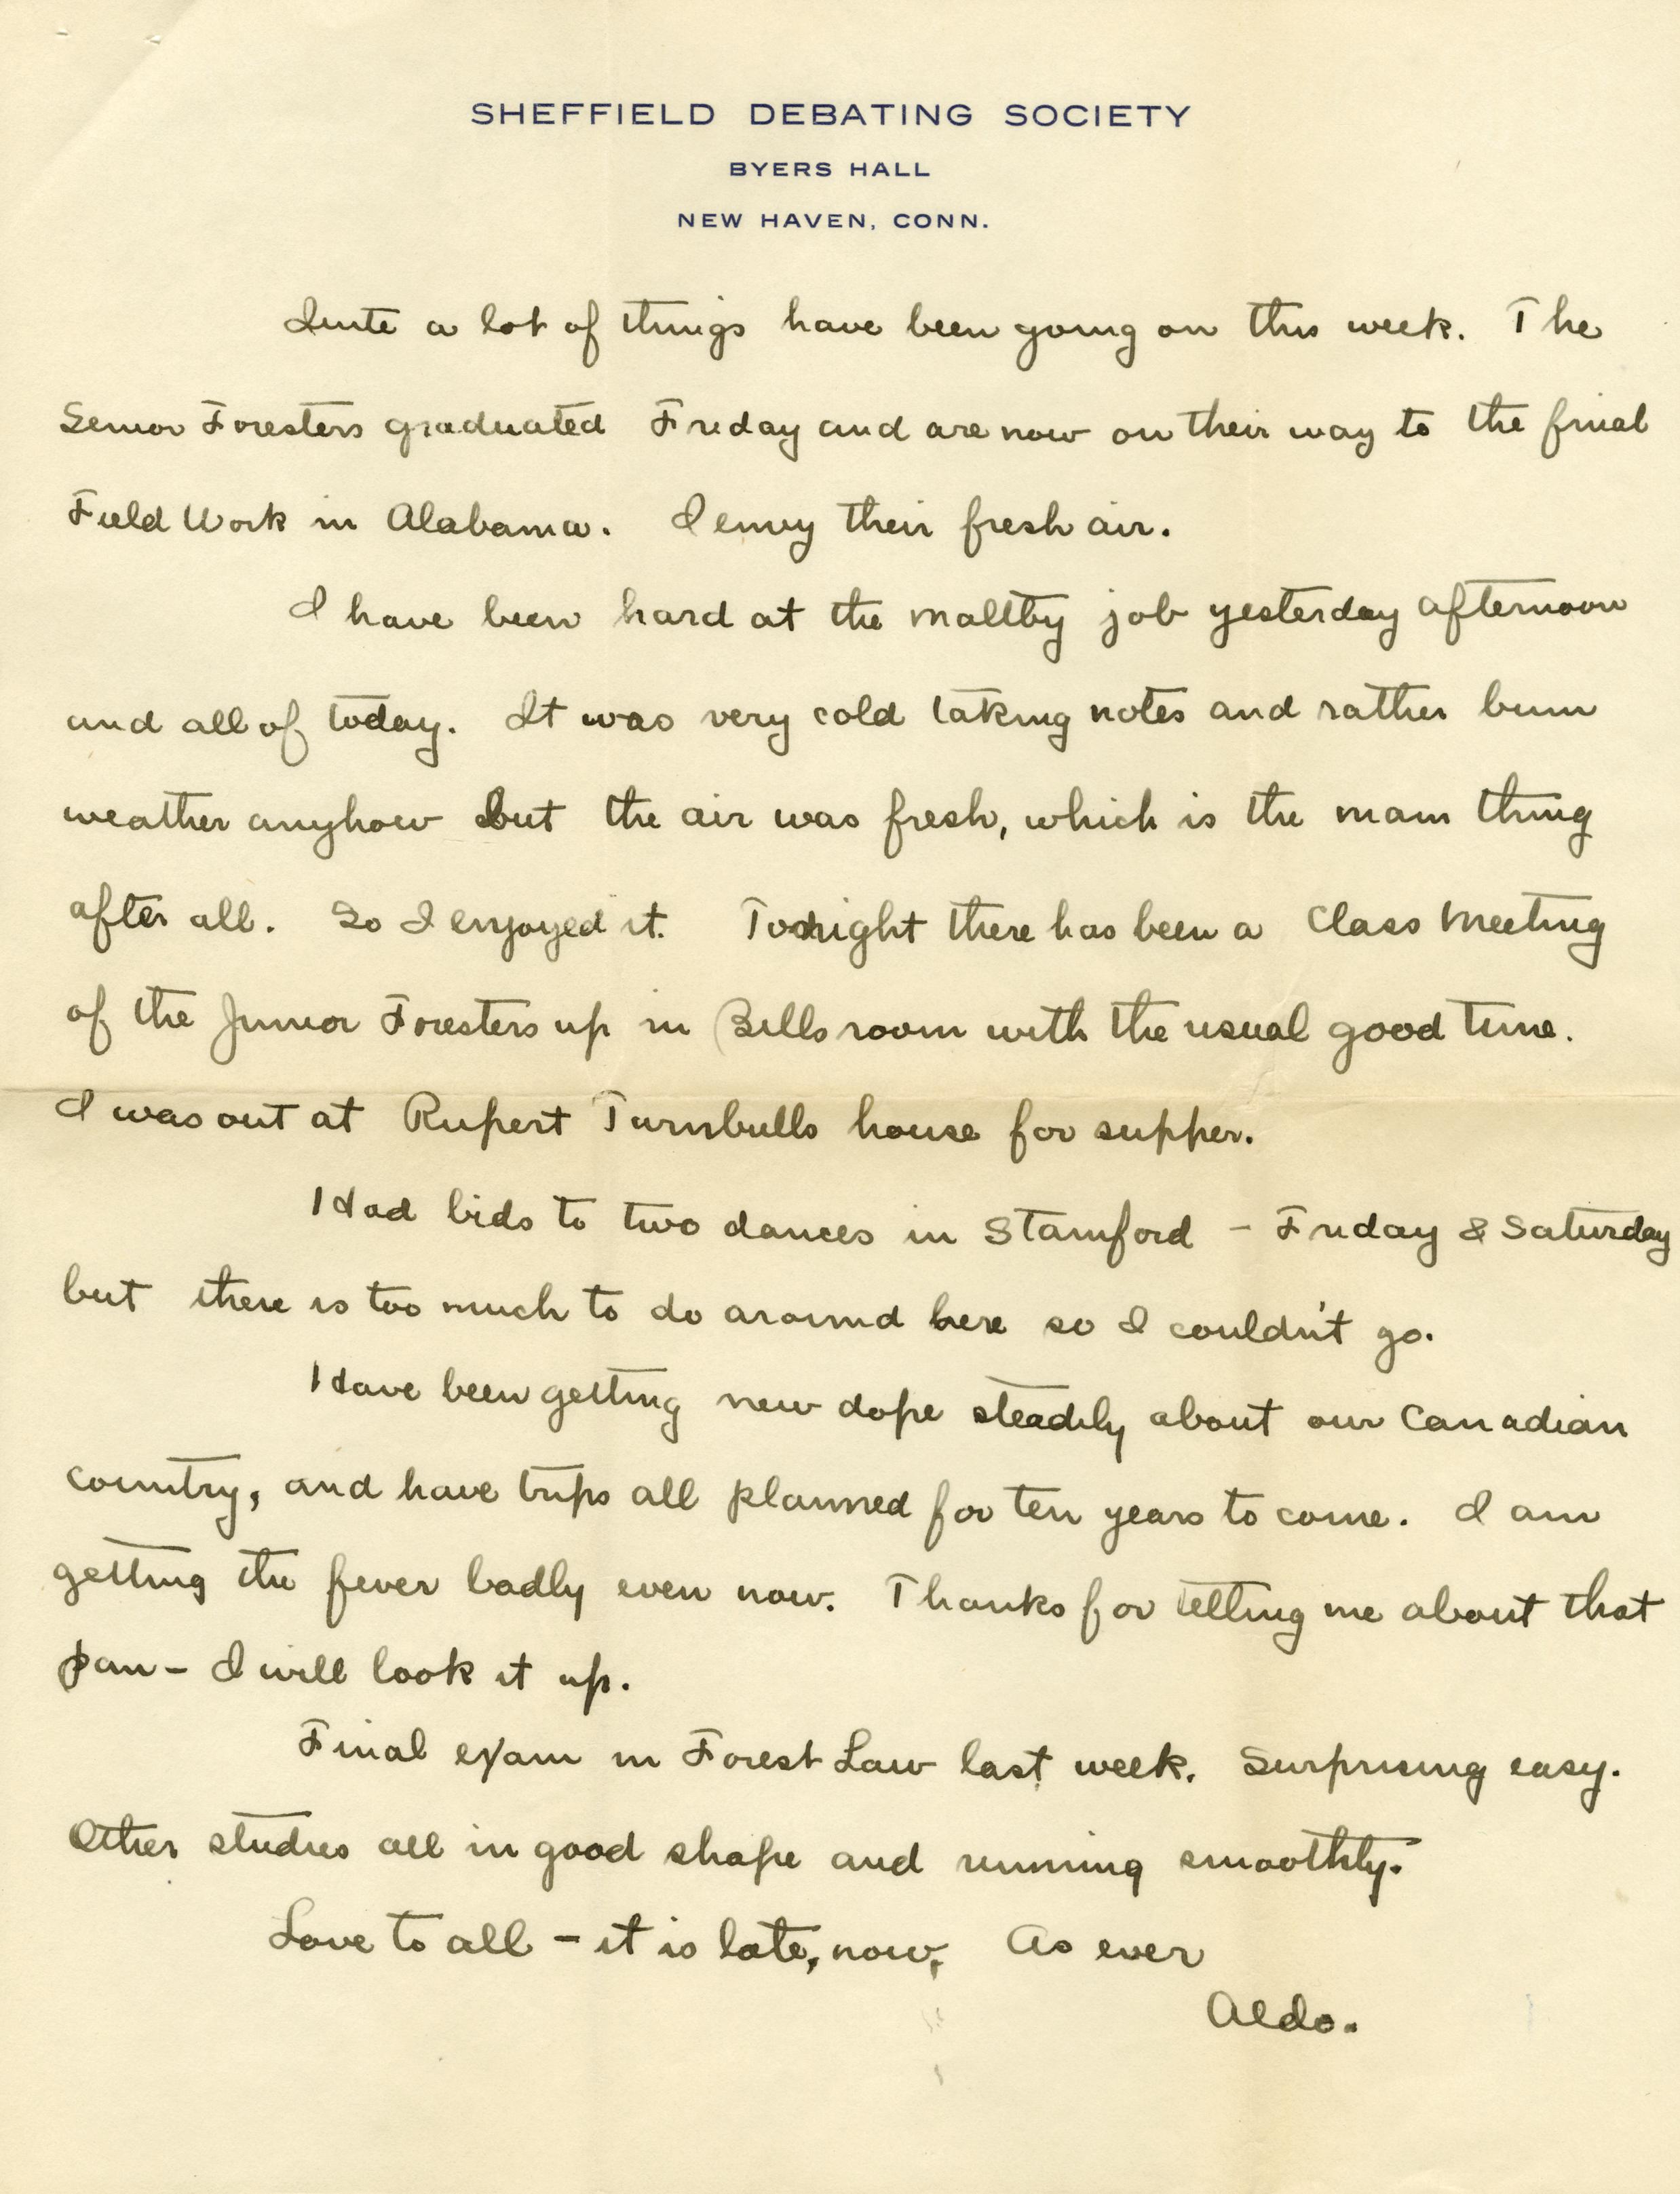 SHEFFIELD DEBATING SOCIETY
BYERS HALL
NEW HAVEN, CONN.
Quite a lot of things have been going on this week. The
Senior Foresters graduated Friday and are now on their way to the final
Field Work in Alabama. I envy their fresh air.
I have been hard at the Maltby job yesterday afternoon
and all of today. It was very cold taking notes and rather bum
weather anyhow but the air was fresh, which is the main thing
after all. So I enjoyed it. Tonight there has been a Class Meeting
of the Junior Foresters up in Bills room with the usual good time.
I was out at Rupert Turnbulls house for supper.
Had bids to two dances in Stamford - Friday & Saturday
but there is too much to do around here so I couldn't go.
Have been getting new dope steadily about our Canadian
country, and have trips all planned for ten years to come. I am
getting the fever badly even now. Thanks for telling me about that
pan - I will look it up.
Final exam in Forest Law last week. Surprising easy.
Other studies all in good shape and running smoothly.
Love to all - it is late, now, As ever
Aldo.